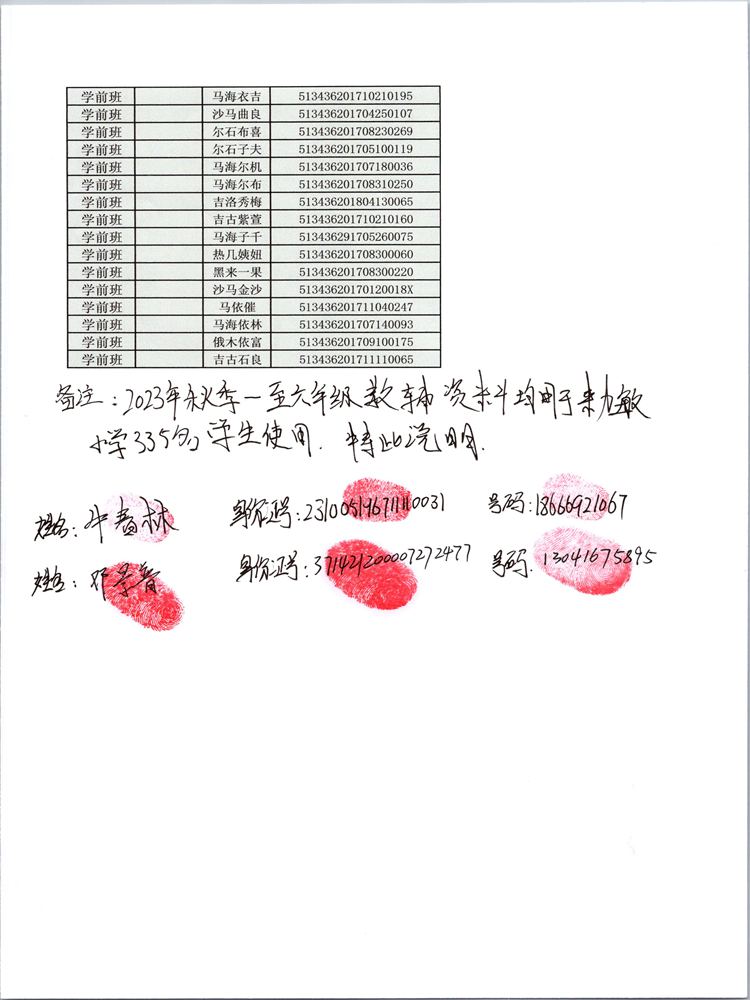 学前班 马海衣吉 513436201710210195
学前班 沙马曲良 513436201704250107
学前班 尔石布喜 513436201708230269
学前班 尔石子夫 513436201705100119
学前班 马海尔机 513436201707180036
学前班 马海尔布 513436201708310250
学前班 吉洛秀梅 513436201804130065
学前班 吉古紫萱 513436201710210160
学前班 马海子千 513436291705260075
学前班 热几姨妞 513436201708300060
学前班 黑来一果 513436201708300220
学前班 沙马金沙 51343620170120018X
学前班 马依催 513436201711040247
学前班 马海依林 513436201707140093
学前班 俄木依富 513436201709100175
学前班 吉古石良 513436201711110065
备注：2023年秋季一至六年级教辅资料均用于来力敏
小学335名学生使用．特此说明．
姓名：牛春林 身份证号：231005196711110031 号码：18666921067
姓名：邓孝普 身份证号：371421200007272477 号码：13041675895